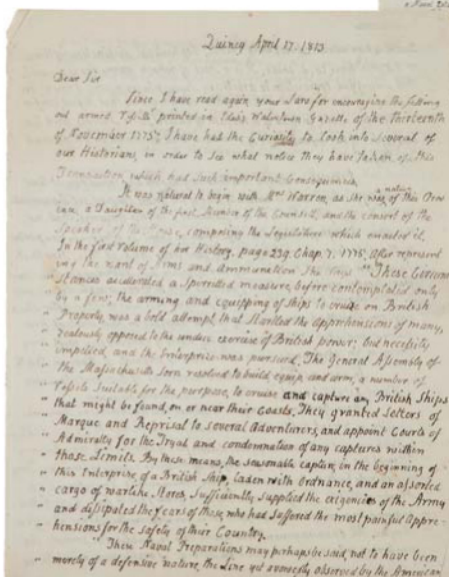 Quincy April 17. 1813
Dear Sir
Since I have read again your Law for encouraging the fitting
out armed Vessells printed in Watertown Gazette of the thirteenth
of November 1775, I have had the Curiosity to look into several of
our Historians, in order to see what notice they have taken of this
Transaction which had such important Consequences.
It was natural to begin with Mrs Warren, as she was a native of this
a Daughter of the first Member of the Counsell, and the consort of the
Speaker of the House, comprising the Legislature which enacted it.
In the first Volume of her History, page 239. Chap. 7. 1775, After represent
ing the want of Arms and Ammunation She says "These Circum
" Stances accelerated a Spirited measure, before contemplated only
" by a few; the arming and equipping of Ships to cruise on British
" Property, was a bold attempt, that startled the Apprehensions of many,
" Zealously opposed to the undue exercise of British power; but necessity
" impelled, and the Enterprise was pursued. The General Assembly of
" the Massachusetts soon resolved to build, equip and arm, a number of
" Vessells Suitable for the purpose, to cruise and capture any British Ships
" that might be found, on or near their Coasts. They granted Letters of
" Marque and Reprisal to several Adventurers, and appoint Courts of
" Admiralty for the Tryal and condemnation of any captures within
" those Limits. By these means, the seasonable capture, in the beginning of
" this Enterprize, of a British Ship, laden with Ordnance, and an assorted
" cargo of warlike Stores, Sufficiently supplied the exigencies of the Army
" and dissipated the fears of those, who had suffered the most painful Appre-
" hensions for the safety of their Country.
" These Naval Preparations may perhaps be said, not to have been
" merely of a defensive nature, the Line yet avowedly observed by the American